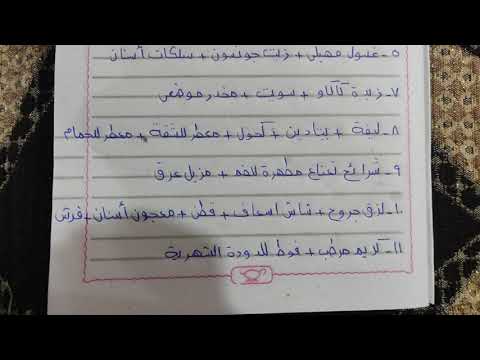 ٥- غسول مهبلي + زيت جونسون + سلكات أسنان
٧- زبدة كاكاو + سويت + مخدر موضعي
٨- ليفة + بيتادين + كحول + معطر للشقة + معطر للحمام
٩- شرائح نعناع مطهرة للفم + مزيل عرق
١٠- لازق جروح + شاش اسعاف + قطن + معجون أسنان + فرش
١١- كريم مرطب + فوط للدورة الشهرية